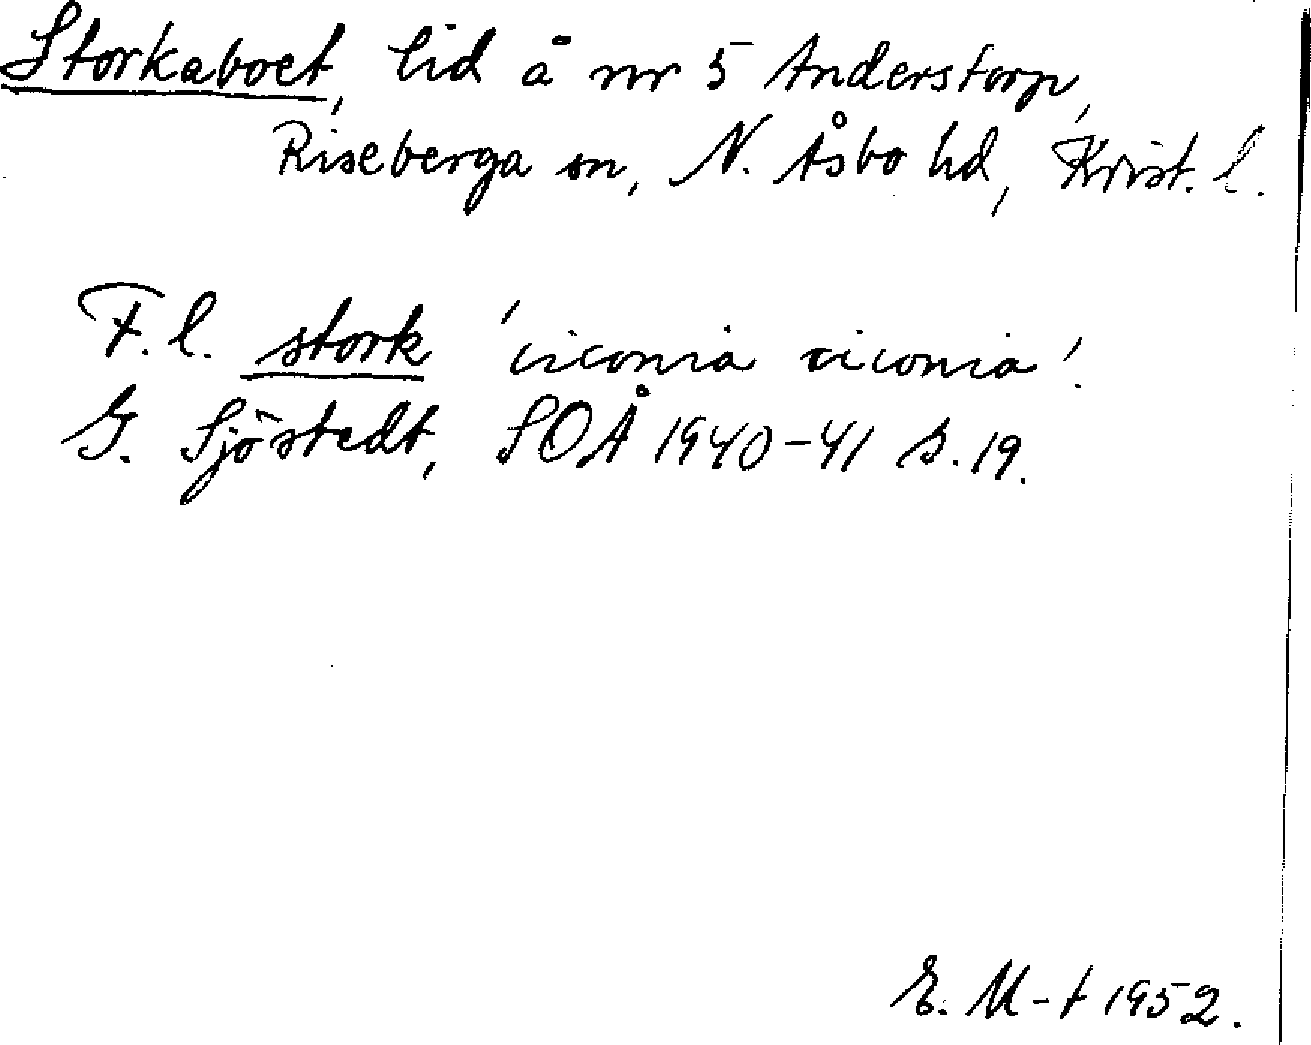 Storkaboet, lid å nr 5 Anderstorp,
Riseberga sn, N. Åsbo hd, Krist. l.
F. l. stork 'ciconia ciconia'.
G. Sjöstedt, SOÅ 1940-41 s. 19.
E. M-t 1952.